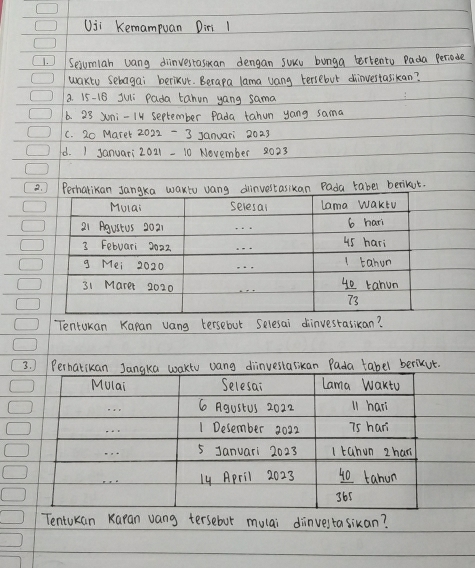 Uji Kemampuan Diri 1
1. Sejumlah uang diinvestasikan dengan suku bunga tertentu pada periode
waktu sebagai berikut. Berapa lama uang tersebut diinvestasikan?
a. 15-18 Juli pada tahun yang sama
b. 23 Juni - 14 September pada tahun yang sama
c. 20 Maret 2022 - 3 Januari 2023
d. 1 Januari 2021 - 10 November 2023
2. Perhatikan jangka waktu uang diinvestasikan pada tabel berikut.
Mulai Selesai Lama Waktu
21 Agustus 2021 ... 6 hari
3 Febuari 2022 ... 45 hari
9 Mei 2020 ... 1 tahun
31 Maret 2020 ... 40 tahun
73
Tentukan Kapan uang tersebut selesai diinvestasikan?
3. Perhatikan jangka waktu uang diinvestasikan pada tabel berikut.
Mulai Selesai Lama Waktu
... 6 Agustus 2022 11 hari
... 1 Desember 2022 75 hari
... 5 Januari 2023 1 tahun 2 hari
... 14 April 2023 40 tahun
365
Tentukan Kapan uang tersebut mulai diinvestasikan?